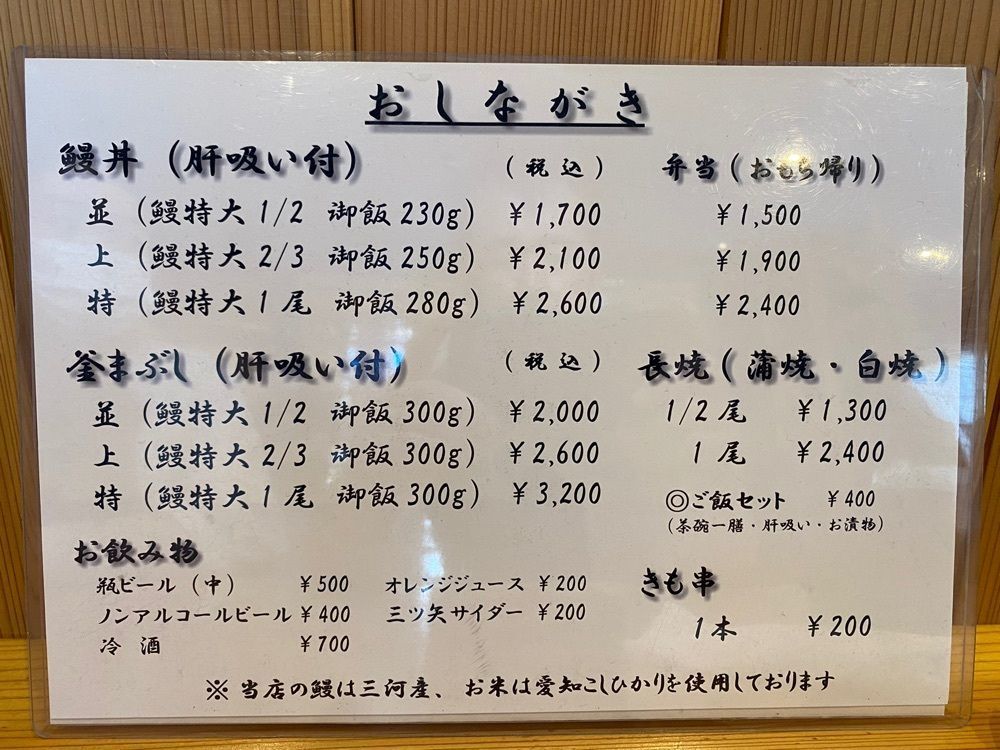 おしながき
鰻丼（肝吸い付） （税込） 弁当（おもち帰り）
並（鰻特大1/2 御飯230g） ¥1,700 ¥1,500
上（鰻特大2/3 御飯250g） ¥2,100 ¥1,900
特（鰻特大1尾 御飯280g） ¥2,600 ¥2,400
釜まぶし（肝吸い付） （税込）
並（鰻特大1/2 御飯300g） ¥2,000
上（鰻特大2/3 御飯300g） ¥2,600
特（鰻特大1尾 御飯300g） ¥3,200
長焼（蒲焼・白焼）
1/2尾 ¥1,300
1尾 ¥2,400
◎ご飯セット ¥400
（茶碗一膳・肝吸い・お漬物）
お飲み物
瓶ビール（中） ¥500 オレンジジュース ¥200
ノンアルコールビール ¥400 三ツ矢サイダー ¥200
冷酒 ¥700
きも串
1本 ¥200
※当店の鰻は三河産、お米は愛知こしひかりを使用しております